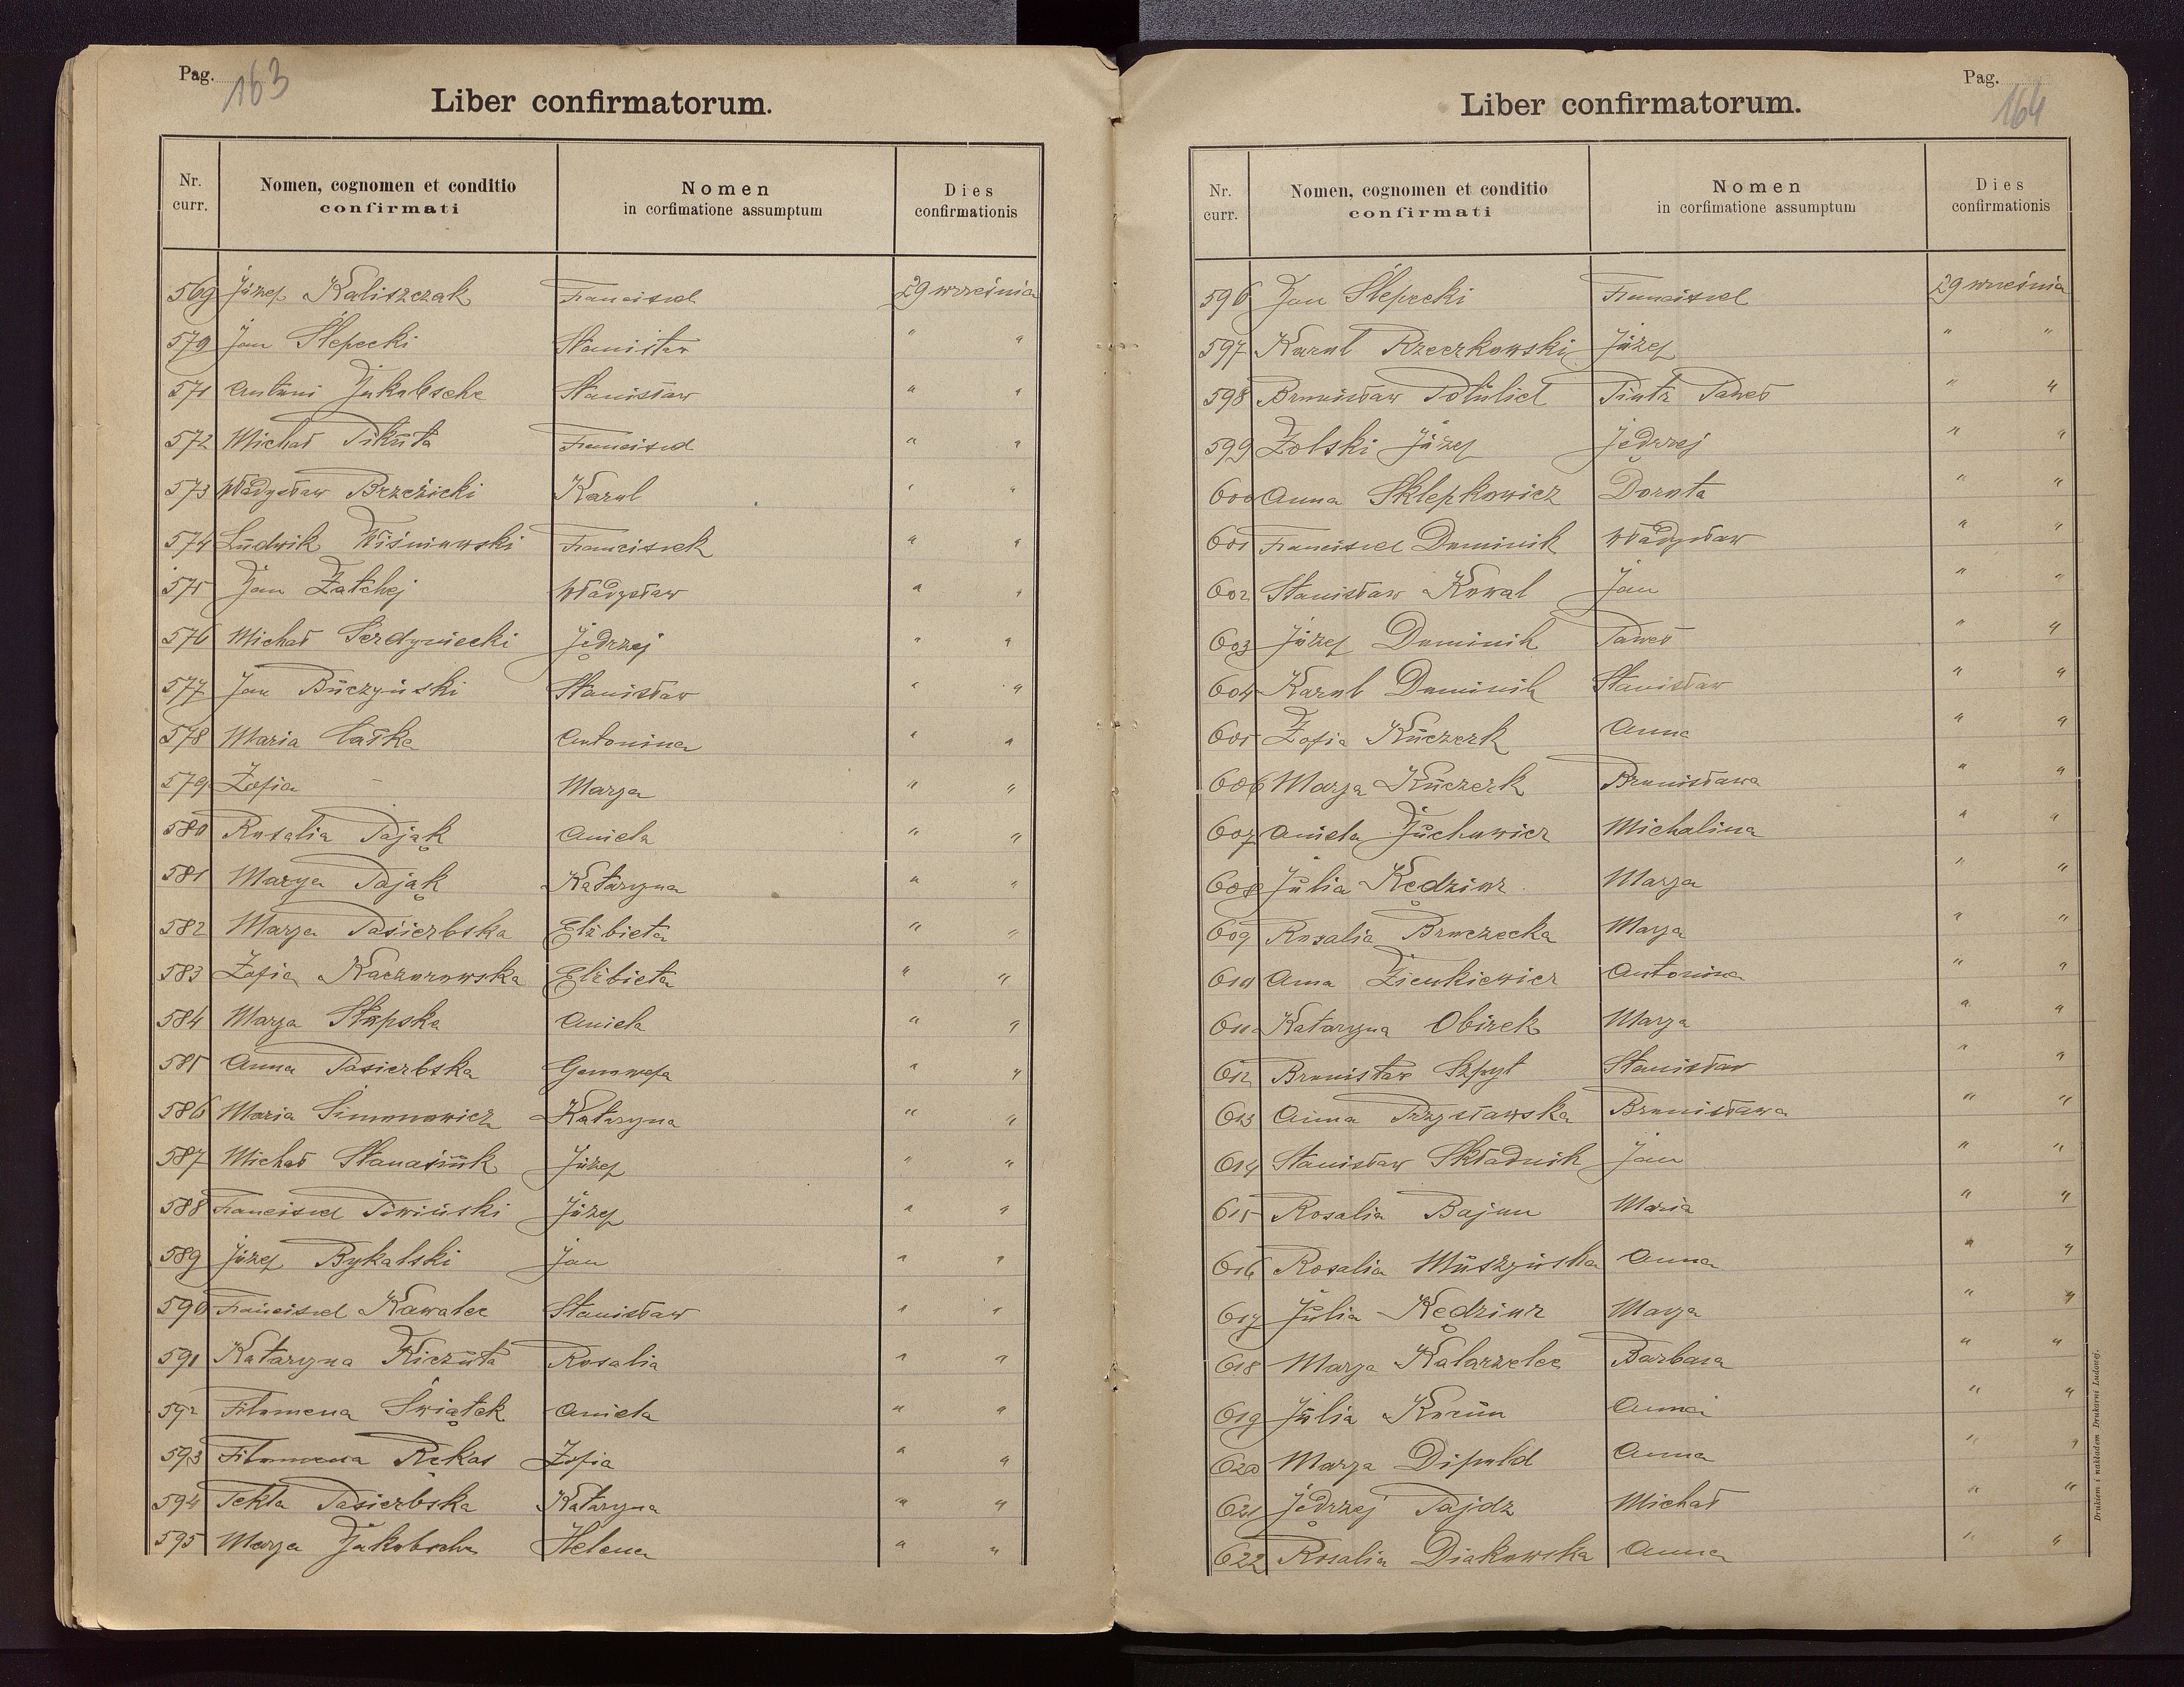 Pag. 163
Liber confirmatorum.
Nr. curr. Nomen, cognomen et conditio confirmati Nomen in corfimatione assumptum Dies confirmationis
569 Józef Kaliszczak Franciszek 29 września
570 Jan Ślepecki Stanisław " "
571 Antoni Jakobsche Stanisław " "
572 Michał Pikuta Franciszek " "
573 Władysław Brzezicki Karol " "
574 Ludwik Wiśniowski Franciszek " "
575 Jan Zatchej Władysław " "
576 Michał Serdyniecki Jędrzej " "
577 Jan Buczyński Stanisław " "
578 Maria Antonina " "
579 Zofia – Marya " "
580 Rosalia Pająk Aniela " "
581 Marya Pająk Katarzyna " "
582 Marya Pasierbska Elżbieta " "
583 Zofia Kaczorowska Elżbieta " "
584 Marya Słupska Aniela " "
585 Anna Pasierbska Genowefa " "
586 Maria Simonowicz Katarzyna " "
587 Michał Stanasiuk Józef " "
588 Franciszek Piwiński Józef " "
589 Józef Rykalski Jan " "
590 Franciszek Kawalec Stanisław " "
591 Katarzyna Kiczuta Rosalia " "
592 Filomena Świątek Aniela " "
593 Filomena Rekas Zofia " "
594 Tekla Pasierbska Katarzyna " "
595 Marya Jakobsche Helena " "
Pag. 164
Liber confirmatorum.
Nr. curr. Nomen, cognomen et conditio confirmati Nomen in corfimatione assumptum Dies confirmationis
596 Jan Ślepecki Franciszek 29 września
597 Karol Rzeczkowski Józef " "
598 Bronisław Potulicl Piotr Paweł " "
599 Zolski Józef Jędrzej " "
600 Anna Sklepkowicz Dorota " "
601 Franciszek Dominik Władysław " "
602 Stanisław Kowal Jan " "
603 Józef Dominik Paweł " "
604 Karol Dominik Stanisław " "
605 Zofia Kuczerk Anna " "
606 Marya Kuczerk Bronisława " "
607 Aniela Juchowicz Michalina " "
608 Julia Kędzior Marya " "
609 Rosalia Broczecka Marya " "
610 Anna Zienkiewicz Antonina " "
611 Katarzyna Obirek Marya " "
612 Bronisław Szpyt Stanisław " "
613 Anna Przysławska Bronisława " "
614 Stanisław Składnik Jan " "
615 Rosalia Bajon Maria " "
616 Rosalia Muszyńska Anna " "
617 Julia Kędzior Marya " "
618 Marya Kalarzelec Barbara " "
619 Julia Korun Anna " "
620 Marya Dipold Anna " "
621 Jędrzej Pajdz Michał " "
622 Rosalia Diakowska Anna " "
Drukiem i nakładem Drukarni Ludowej.